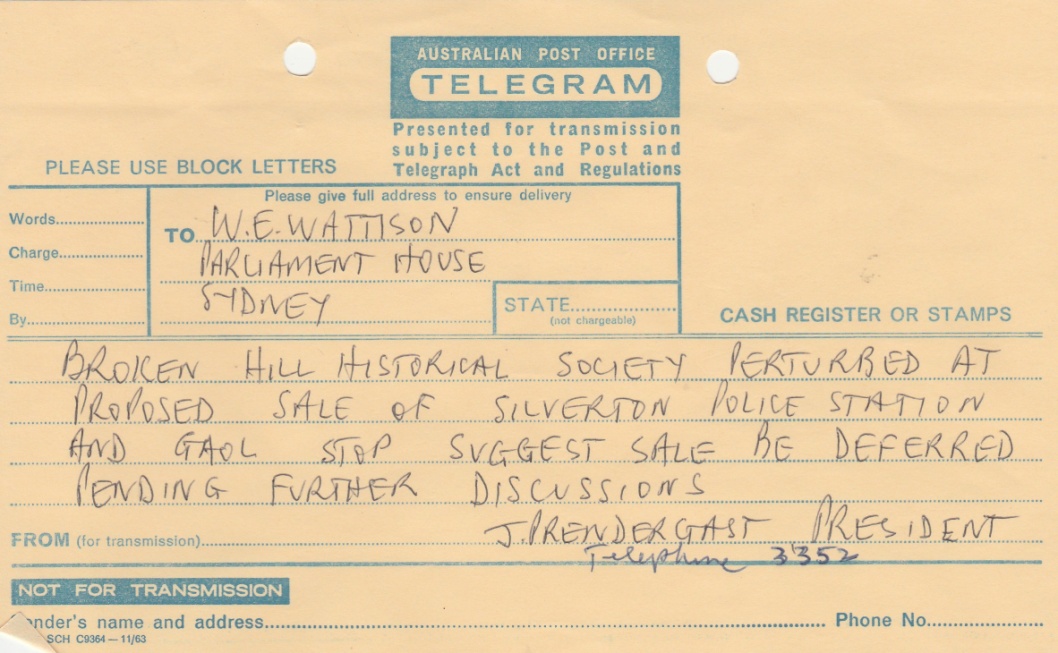 AUSTRALIAN POST OFFICE
TELEGRAM
Presented for transmission
subject to the Post and
Telegraph Act and Regulations
PLEASE USE BLOCK LETTERS
Please give full address to ensure delivery
Words
Charge
Time
By
TO W.E. WATTISON
PARLIAMENT HOUSE
SYDNEY
STATE
(not chargeable)
CASH REGISTER OR STAMPS
BROKEN HILL HISTORICAL SOCIETY PERTURBED AT
PROPOSED SALE OF SILVERTON POLICE STATION
AND GAOL STOP SUGGEST SALE BE DEFERRED
PENDING FURTHER DISCUSSIONS
FROM (for transmission) J. PRENDERGAST PRESIDENT
Telephone 3352
NOT FOR TRANSMISSION
Sender's name and address
Phone No.
SCH C9364 — 11/63